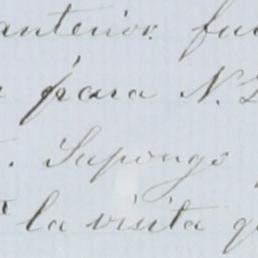 anterior
para N.
Supongo
la visita